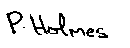 P. Holmes